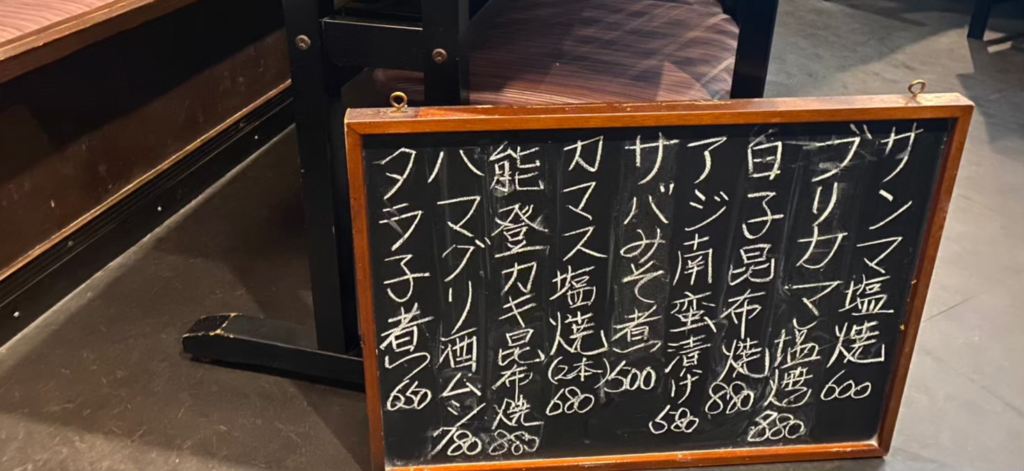 サンマ塩焼 600
ブリカマ塩焼 880
白子昆布焼 880
アジ南蛮漬け 680
サバみそ煮つ 600
カマス塩焼(2本) 680
能登カキ昆布焼 880
ハマグリ酒ムシ 780
タラ子煮つ 650